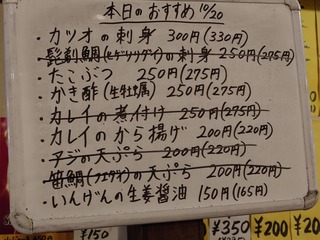 本日のおすすめ 10/20
・カツオの刺身 300円(330円)
・髭剃鯛(ヒゲソリダイ)の刺身 250円(275円)
・たこぶつ 250円(275円)
・かき酢(生牡蠣) 250円(275円)
・カレイの煮付け 250円(275円)
・カレイのから揚げ 200円(220円)
・アジの天ぷら 200円(220円)
・笛鯛(フエダイ)の天ぷら 200円(220円)
・いんげんの生姜醤油 150円(165円)
¥150
¥350
¥200
¥200